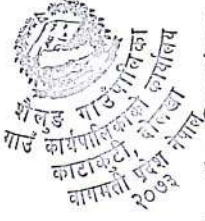 शैलुङ गाउँपालिका
गाउँ कार्यपालिकाको कार्यालय
काटाकुटी, दोलखा
वागमती प्रदेश नेपाल
२०७३